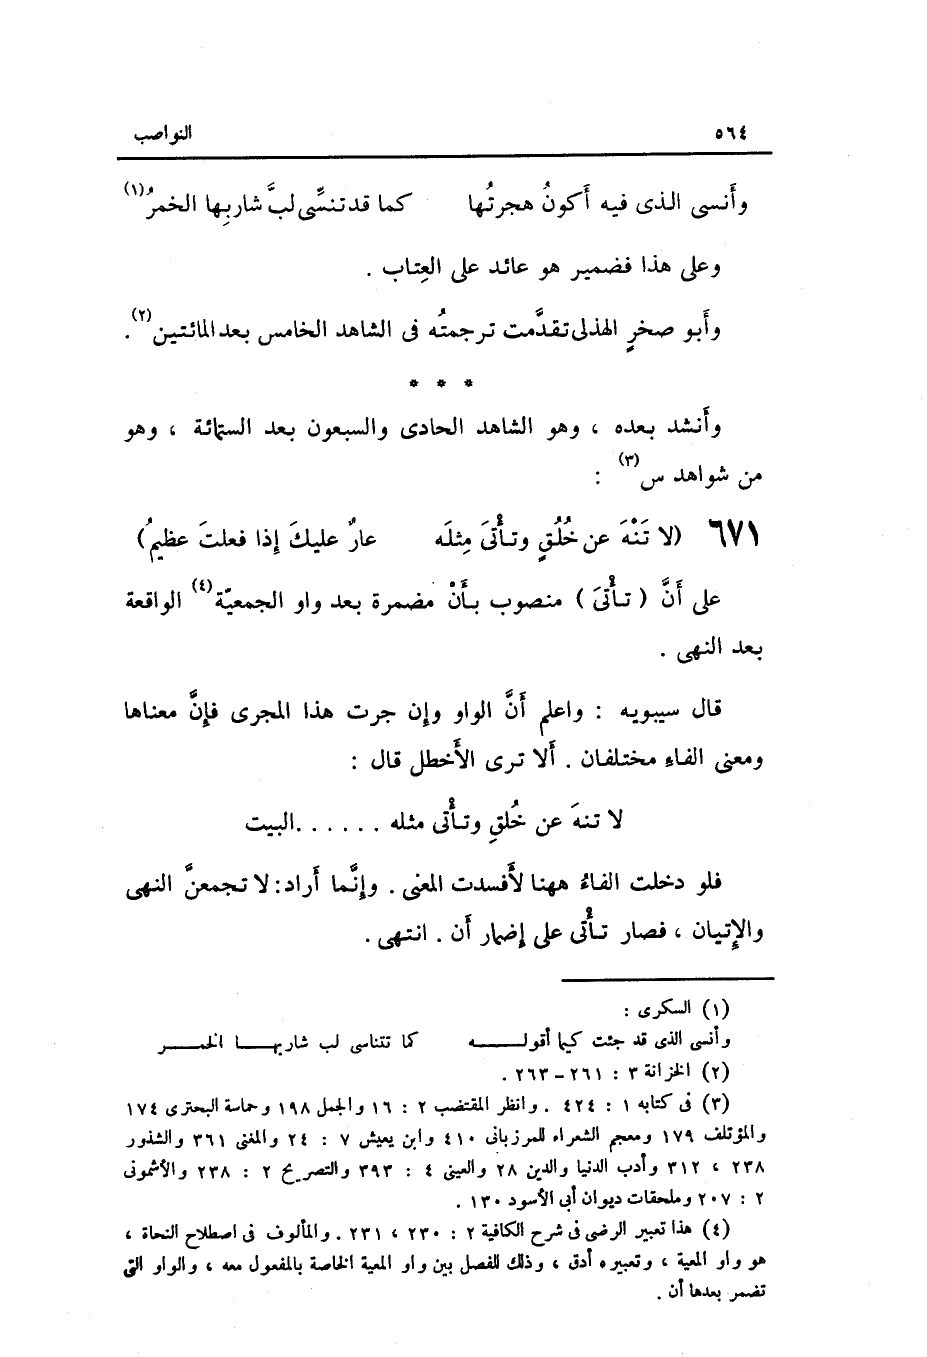 ٥٦٤ النواصب
وأَنسى الذى فيه أَكونُ هجرتُها كما قد تنسِّى لبَّ شاربِها الخمرُ (١)
وعلى هذا فضمير هو عائد على العِتاب .
وأَبو صخرٍ الهذلى تقدَّمت ترجمتُه فى الشاهد الخامس بعد المائتين (٢) .
* * *
وأَنشد بعده ، وهو الشاهد الحادى والسبعون بعد الستمائة ، وهو
من شواهد س (٣) :
٦٧١ (لا تَنْهَ عن خُلُقٍ وتأْتىَ مِثلَه عارٌ عليكَ إذا فعلتَ عظيمُ)
على أَنَّ ( تأْتىَ ) منصوب بأَنْ مضمرة بعد واو الجمعيّة (٤) الواقعة
بعد النهى .
قال سيبويه : واعلم أَنَّ الواو وإن جرت هذا المجرى فإنَّ معناها
ومعنى الفاء مختلفان . أَلا ترى الأَخطل قال :
لا تنهَ عن خُلقِ وتأْتى مثله . . . . . . البيت
فلو دخلت الفاءُ ههنا لأَفسدت المعنى . وإنَّما أَراد : لا تجمعنَّ النهى
والإتيان ، فصار تأْتى على إضمار أَن . انتهى .
(١) السكرى :
وأنسى الذى قد جئت كيما أقولـــه كما تتناسى لب شاربهـــا الخمـــر
(٢) الخزانة ٣ : ٢٦١ – ٢٦٣ .
(٣) فى كتابه ١ : ٤٢٤ . وانظر المقتضب ٢ : ١٦ والجمل ١٩٨ وحماسة البحترى ١٧٤
والمؤتلف ١٧٩ ومعجم الشعراء للمرزبانى ٤١٠ وابن يعيش ٧ : ٢٤ والمغنى ٣٦١ والشذور
٢٣٨ ، ٣١٢ وأدب الدنيا والدين ٢٨ والعينى ٤ : ٣٩٣ والتصريح ٢ : ٢٣٨ والأشمونى
٢ : ٢٠٧ وملحقات ديوان أبى الأسود ١٣٠ .
(٤) هذا تعبير الرضى فى شرح الكافية ٢ : ٢٣٠ ، ٢٣١ . والمألوف فى اصطلاح النحاة ،
هو واو المعية ، وتعبيره أدق ، وذلك للفصل بين واو المعية الخاصة بالمفعول معه ، والواو التى
تضمر بعدها أن .